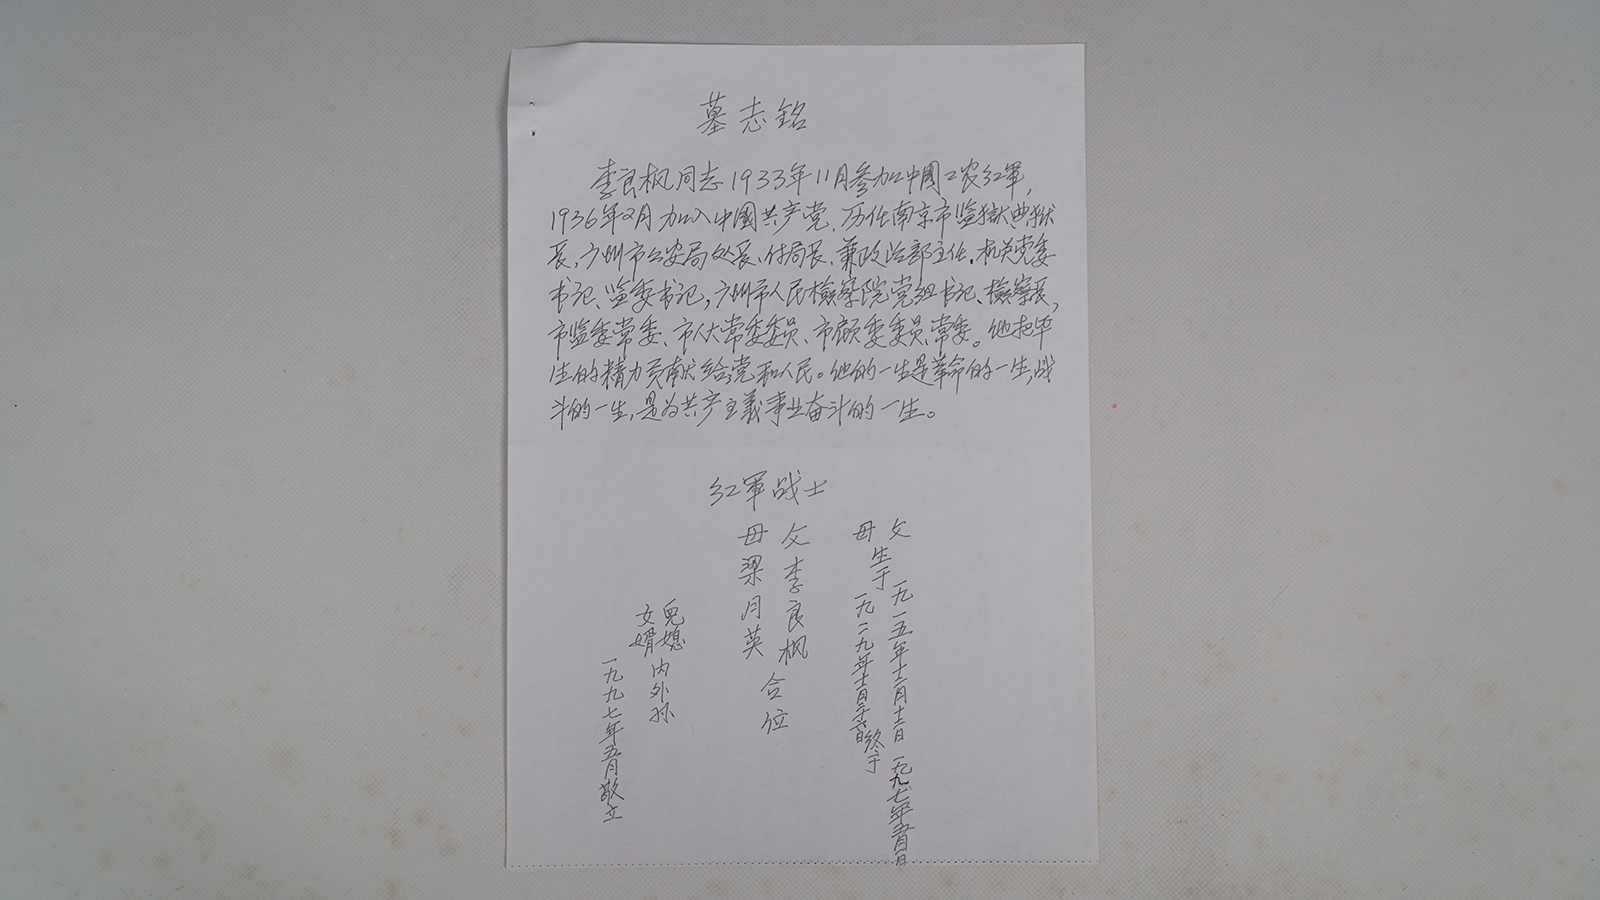 墓志銘
李良枫同志1933年11月参加中國工农红軍，
1936年2月加入中國共产党．历任南京市监獄典狱
長，广州市公安局处長、付局長、兼政治部主任．机关党委
书记、监委书记，广州市人民檢察院党组书记、檢察長，
市监委常委、市人大常委委员、市顾委委员、常委。他把毕
生的精力贡献给党和人民。他的一生是革命的一生，战
斗的一生，是为共产主義事业奋斗的一生。
红軍战士
父 一九一五年十二月十二日 一九九七年五月
母 生于 一九二九年 终于
父李良枫
母梁月英
合位
兒媳
女婿
内外孙
一九九七年五月敬立